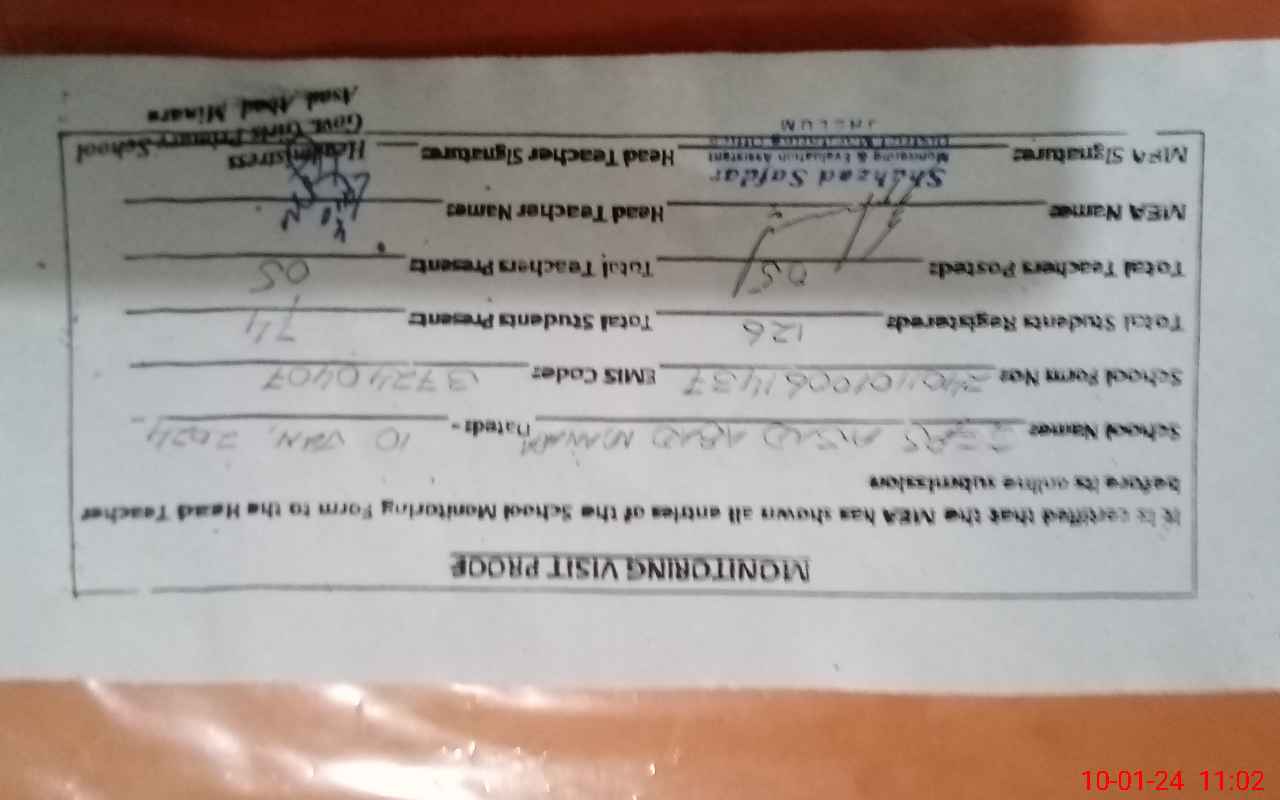 MONITORING VISIT PROOF
It is certified that the MEA has shown all entries of the School Monitoring Form to the Head Teacher
before its online submission
School Name: GGPS ASAD ABAD MINARA Dated:- 10 JAN, 2024
School Form No: EMIS Code: 37240407
Total Students Registered: 126 Total Students Present: 74
Total Teachers Posted: 05 Total Teachers Present: 05
MEA Name: Head Teacher Name:
Shahzad Safdar
Monitoring & Evaluation Assistant
District Monitoring Office
JHELUM
MEA Signature: Head Teacher Signature:
Headmistress
Govt. Girls Primary School
Asad Abad Minara
10-01-24 11:02